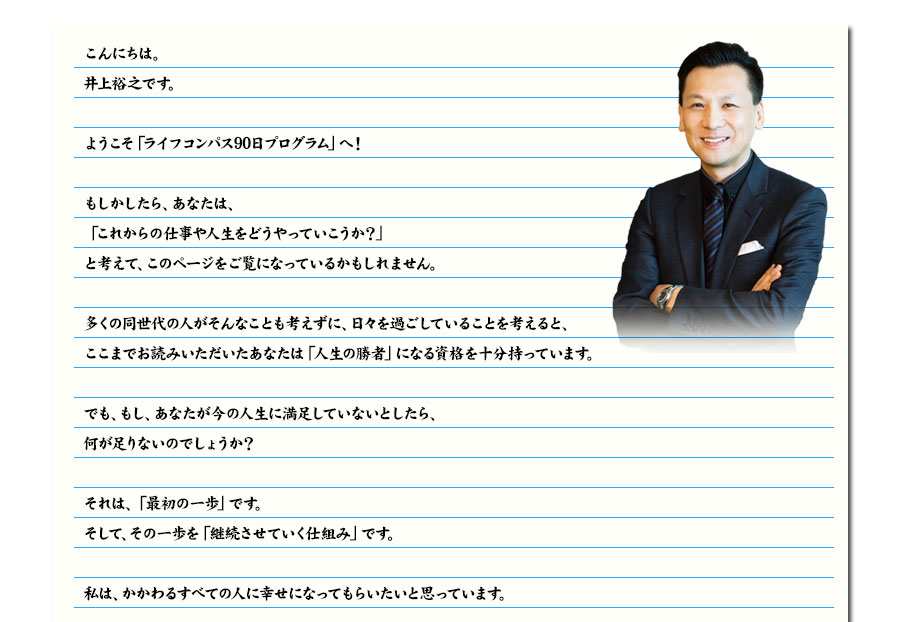 こんにちは。
井上裕之です。
ようこそ「ライフコンパス90日プログラム」へ!
もしかしたら、あなたは、
「これからの仕事や人生をどうやっていこうか?」
と考えて、このページをご覧になっているかもしれません。
多くの同世代の人がそんなことも考えずに、日々を過ごしていることを考えると、
ここまでお読みいただいたあなたは「人生の勝者」になる資格を十分持っています。
でも、もし、あなたが今の人生に満足していないとしたら、
何が足りないのでしょうか?
それは、「最初の一歩」です。
そして、その一歩を「継続させていく仕組み」です。
私は、かかわるすべての人に幸せになってもらいたいと思っています。